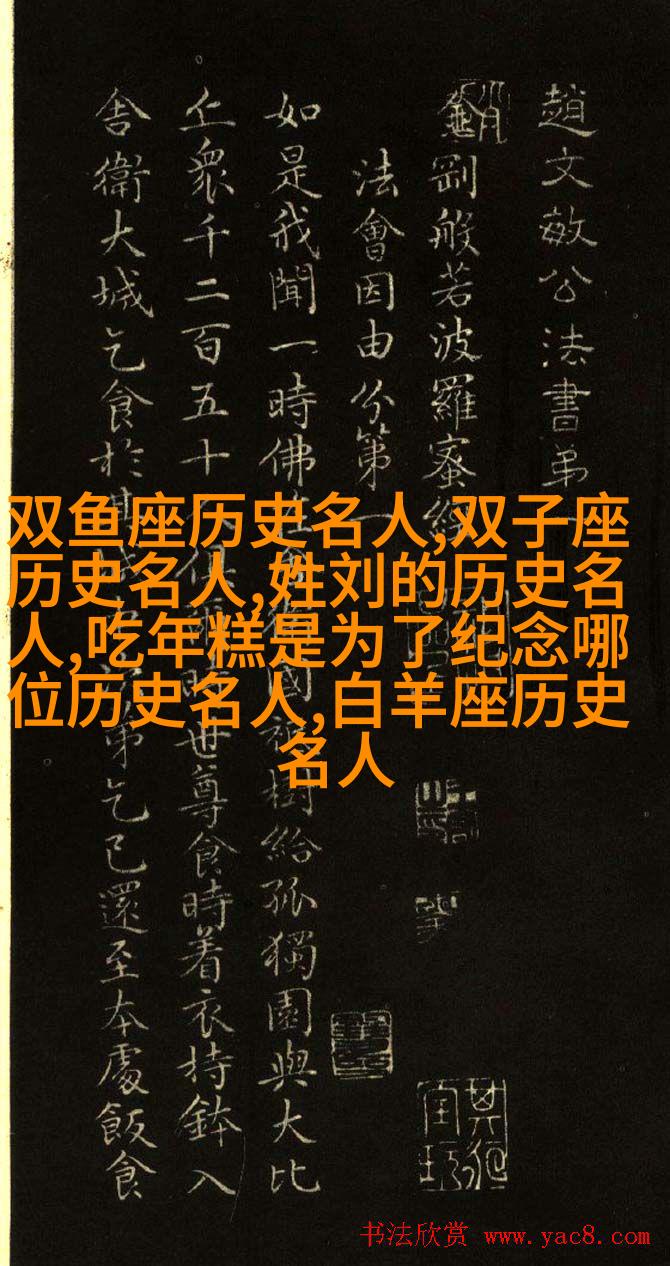 趙文敏公法書弟
金剛般若波羅蜜經
法會因由分第一
如是我聞一時佛在國祇樹給孤獨園與大比
丘眾千二百五十人俱爾時世尊食時着衣持鉢入
舍衛大城乞食於其城中次第乞已還至本處飯食
双鱼座历史名人,双子座
历史名人,姓刘的历史名
人,吃年糕是为了纪念哪
位历史名人,白羊座历史
名人
书法欣赏 www.yac8.com